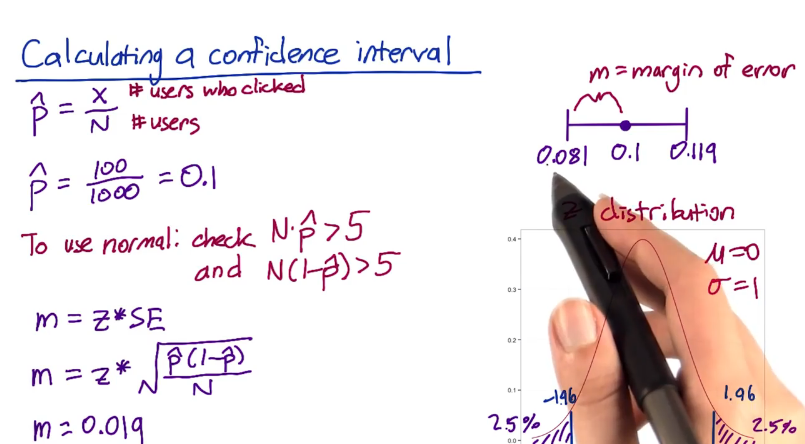 Calculating a confidence interval
p̂ = X/N # users who clicked
# users
p̂ = 100/1000 = 0.1
To use normal: check N·p̂ > 5
and N(1-p̂) > 5
m = z* SE
m = z* √(p̂(1-p̂)/N)
m = 0.019
m = margin of error
0.081 0.1 0.119
z distribution
μ = 0
σ = 1
0.4
0.3
0.2
0.1
0.0
-1.96 1.96
2.5% 2.5%